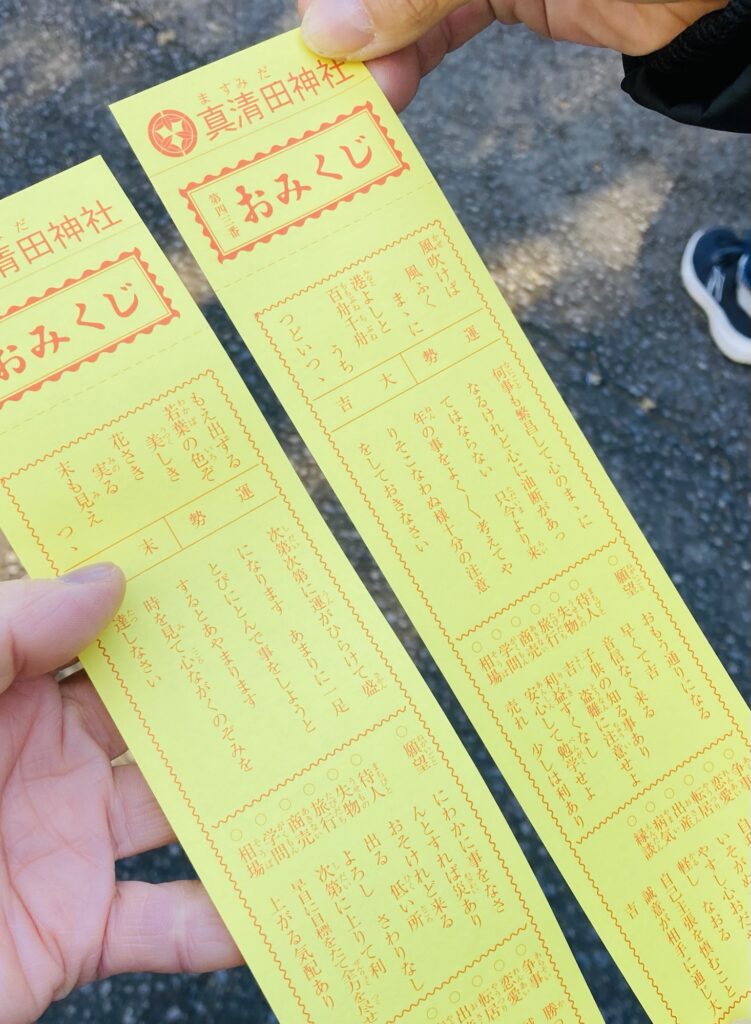 ますみだ
真清田神社
第四三番
おみくじ
風吹けば
風ふくまゝに
港よしと
百舟千舟うち
つどいつゝ
運勢 大吉
何事も繁昌して心のまゝに
なるけれど心に油断があっ
てはならない 只今より来
年の事をよく〱考えてや
りそこなわぬ様十分の注意
をしておきなさい
願望 おもう通りになる
待人
失物 子供の知る事あり
旅行 盗難に注意せよ
商売 利益すくなし
学問 安心して勉学せよ
相場 売れ 少しは利あり
争事
恋愛 自己主張を慎むこと
転居
出産 軽し
病気 なおる
縁談 誠意が相手に通じ大
吉
清田神社
おみくじ
もえ出ずる
若葉の色ぞ
美しき
花さき実る
末も見えつゝ
運勢 末
次第次第に運がひらけて盛
になります あまりに一足
とびにとんで事をしようと
するとあやまります
時を見て心ながくのぞみを
達しなさい
願望 にわかに事をなさ
んとすれば災あり
待人 おそけれど来る
失物 出る 低い所
旅行 よろし さわりなし
商売 次第に上りて利
学問 早目に目標をたて全力を尽せ
相場 上がる気配あり
争事 勝
恋愛
転居
出産